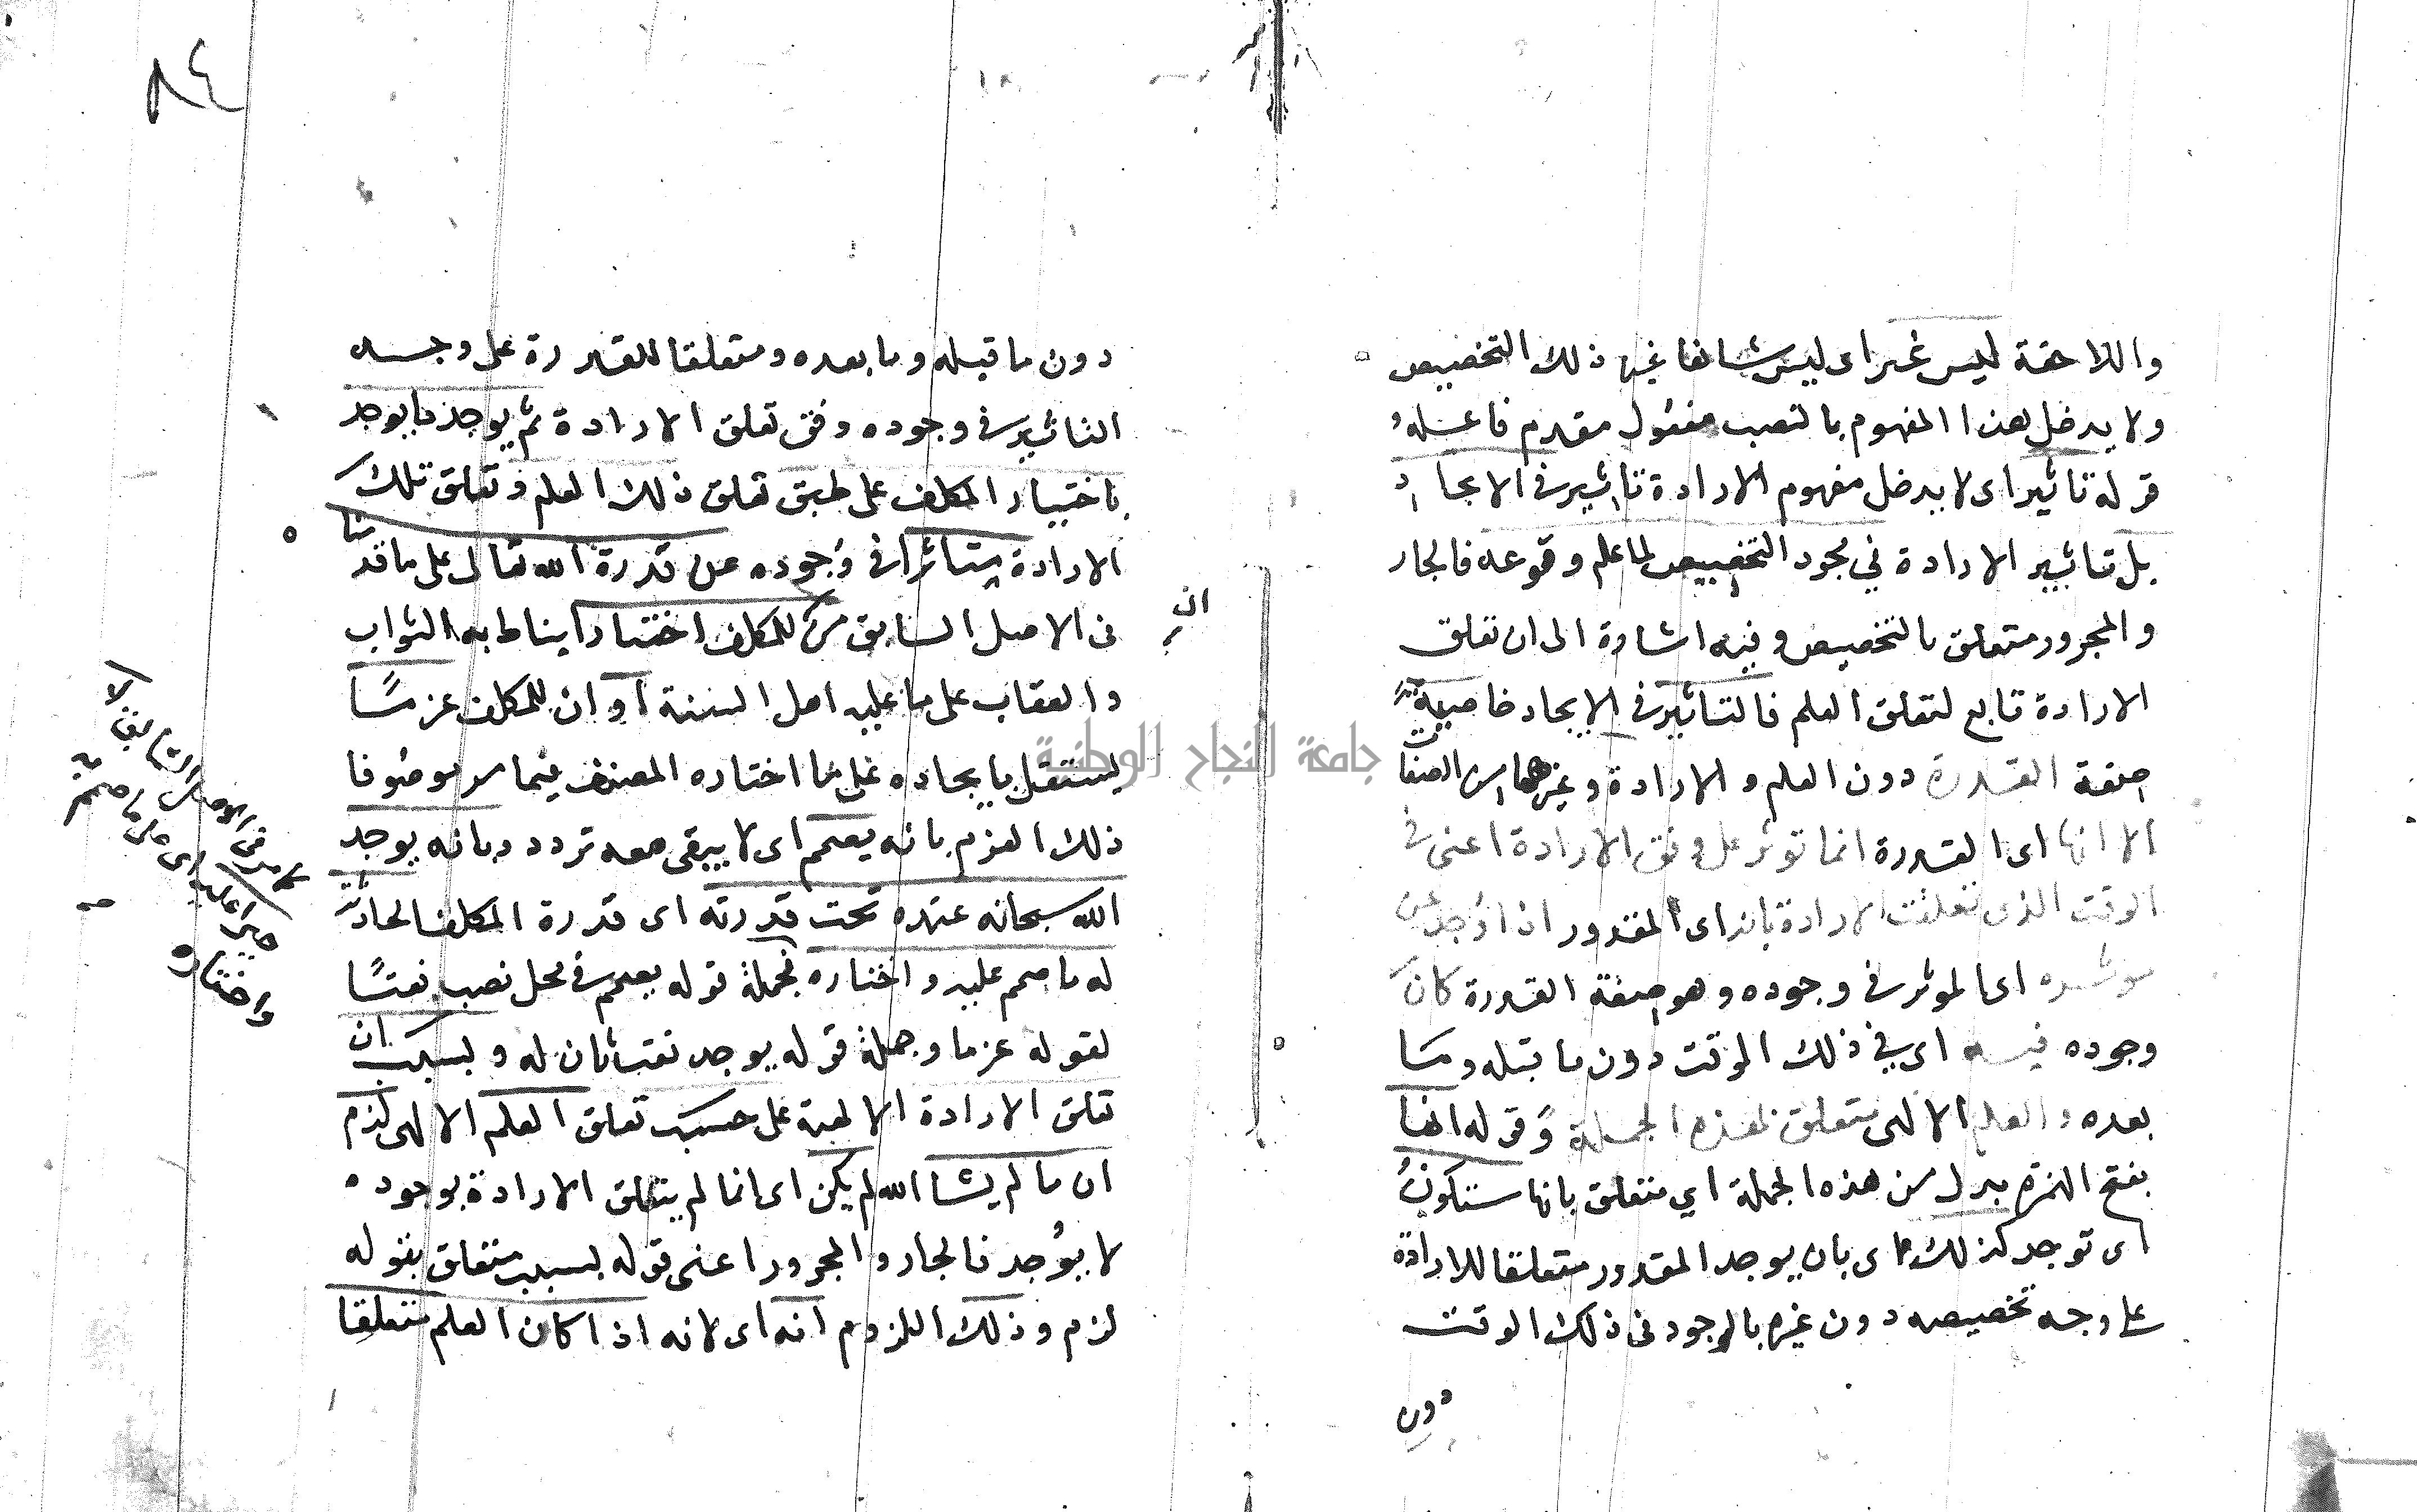 واللاحقة ليس غير اى ليس شانها غير ذلك التخصيص
ولا يدخل هذا المفهوم بالنصب مفعول مقدم فاعله
قوله تاثير اى لا يدخل مفهوم الارادة تاثير في الايجاد
بل تاثير الارادة في مجرد التخصيص لما علم وقوعه فالجار
والمجرور متعلق بالتخصيص وفيه اشارة الى ان تعلق
الارادة تابع لتعلق العلم فالتاثير في الايجاد خاصية
صفة القدرة دون العلم والارادة وغيرهما من الصفات
الا انها اى القدرة انما توثر على وفق الارادة اعنى في
الوقت الذى تعلقت الارادة بانه اى المقدور اذا وجد عن
موثره اى الموثر في وجوده وهو صفة القدرة كان
وجوده فيه اي في ذلك الوقت دون ما قبله وما
بعده والعلم الالهى متعلق بهذه الجملة وقوله انها
بفتح الهمزة بدل من هذه الجملة اي متعلق بانها ستكون
اى توجد كذلك اى بان يوجد المقدور متعلقا للارادة
على وجه تخصيصه دون غيره بالوجود في ذلك الوقت
دون
٨٤
دون ما قبله وما بعده ومتعلقا للقدرة على وجه
التاثير في وجوده وفق تعلق الارادة ثم يوجد ما يوجد
باختيار المكلف على طبق تعلق ذلك العلم وتعلق تلك
الارادة متاثرا في وجوده عن قدرة الله تعالى على ما قدمنا
في الاصل السابق من ان للمكلف اختيارا يناط به الثواب
والعقاب على ما عليه اهل السنة او ان للمكلف عزما
يستقل بايجاده على ما اختاره المصنف فيما مر موصوفا
ذلك العزم بانه يصمم اى لا يبقى معه تردد وبانه يوجد
الله سبحانه عنده تحت قدرته اى قدرة المكلف الحادثة
له ما صمم عليه واختاره فجملة قوله يصمم في محل نصب نعتا
لقوله عزما وجملة قوله يوجد نعت ثان له وبسبب ان
تعلق الارادة الالهية على حسب تعلق العلم الالهى لزم
ان ما لم يشا الله لم يكن اى انما لم يتعلق الارادة بوجوده
لا يوجد فالجار والمجرور اعنى قوله بسبب متعلق بقوله
لزم وذلك اللزوم انه اى لانه اذا كان العلم متعلقا
كما مر في الاصل السابق لا
جبرا عليه اى على ما صمم به
واختاره
جامعة النجاح الوطنية